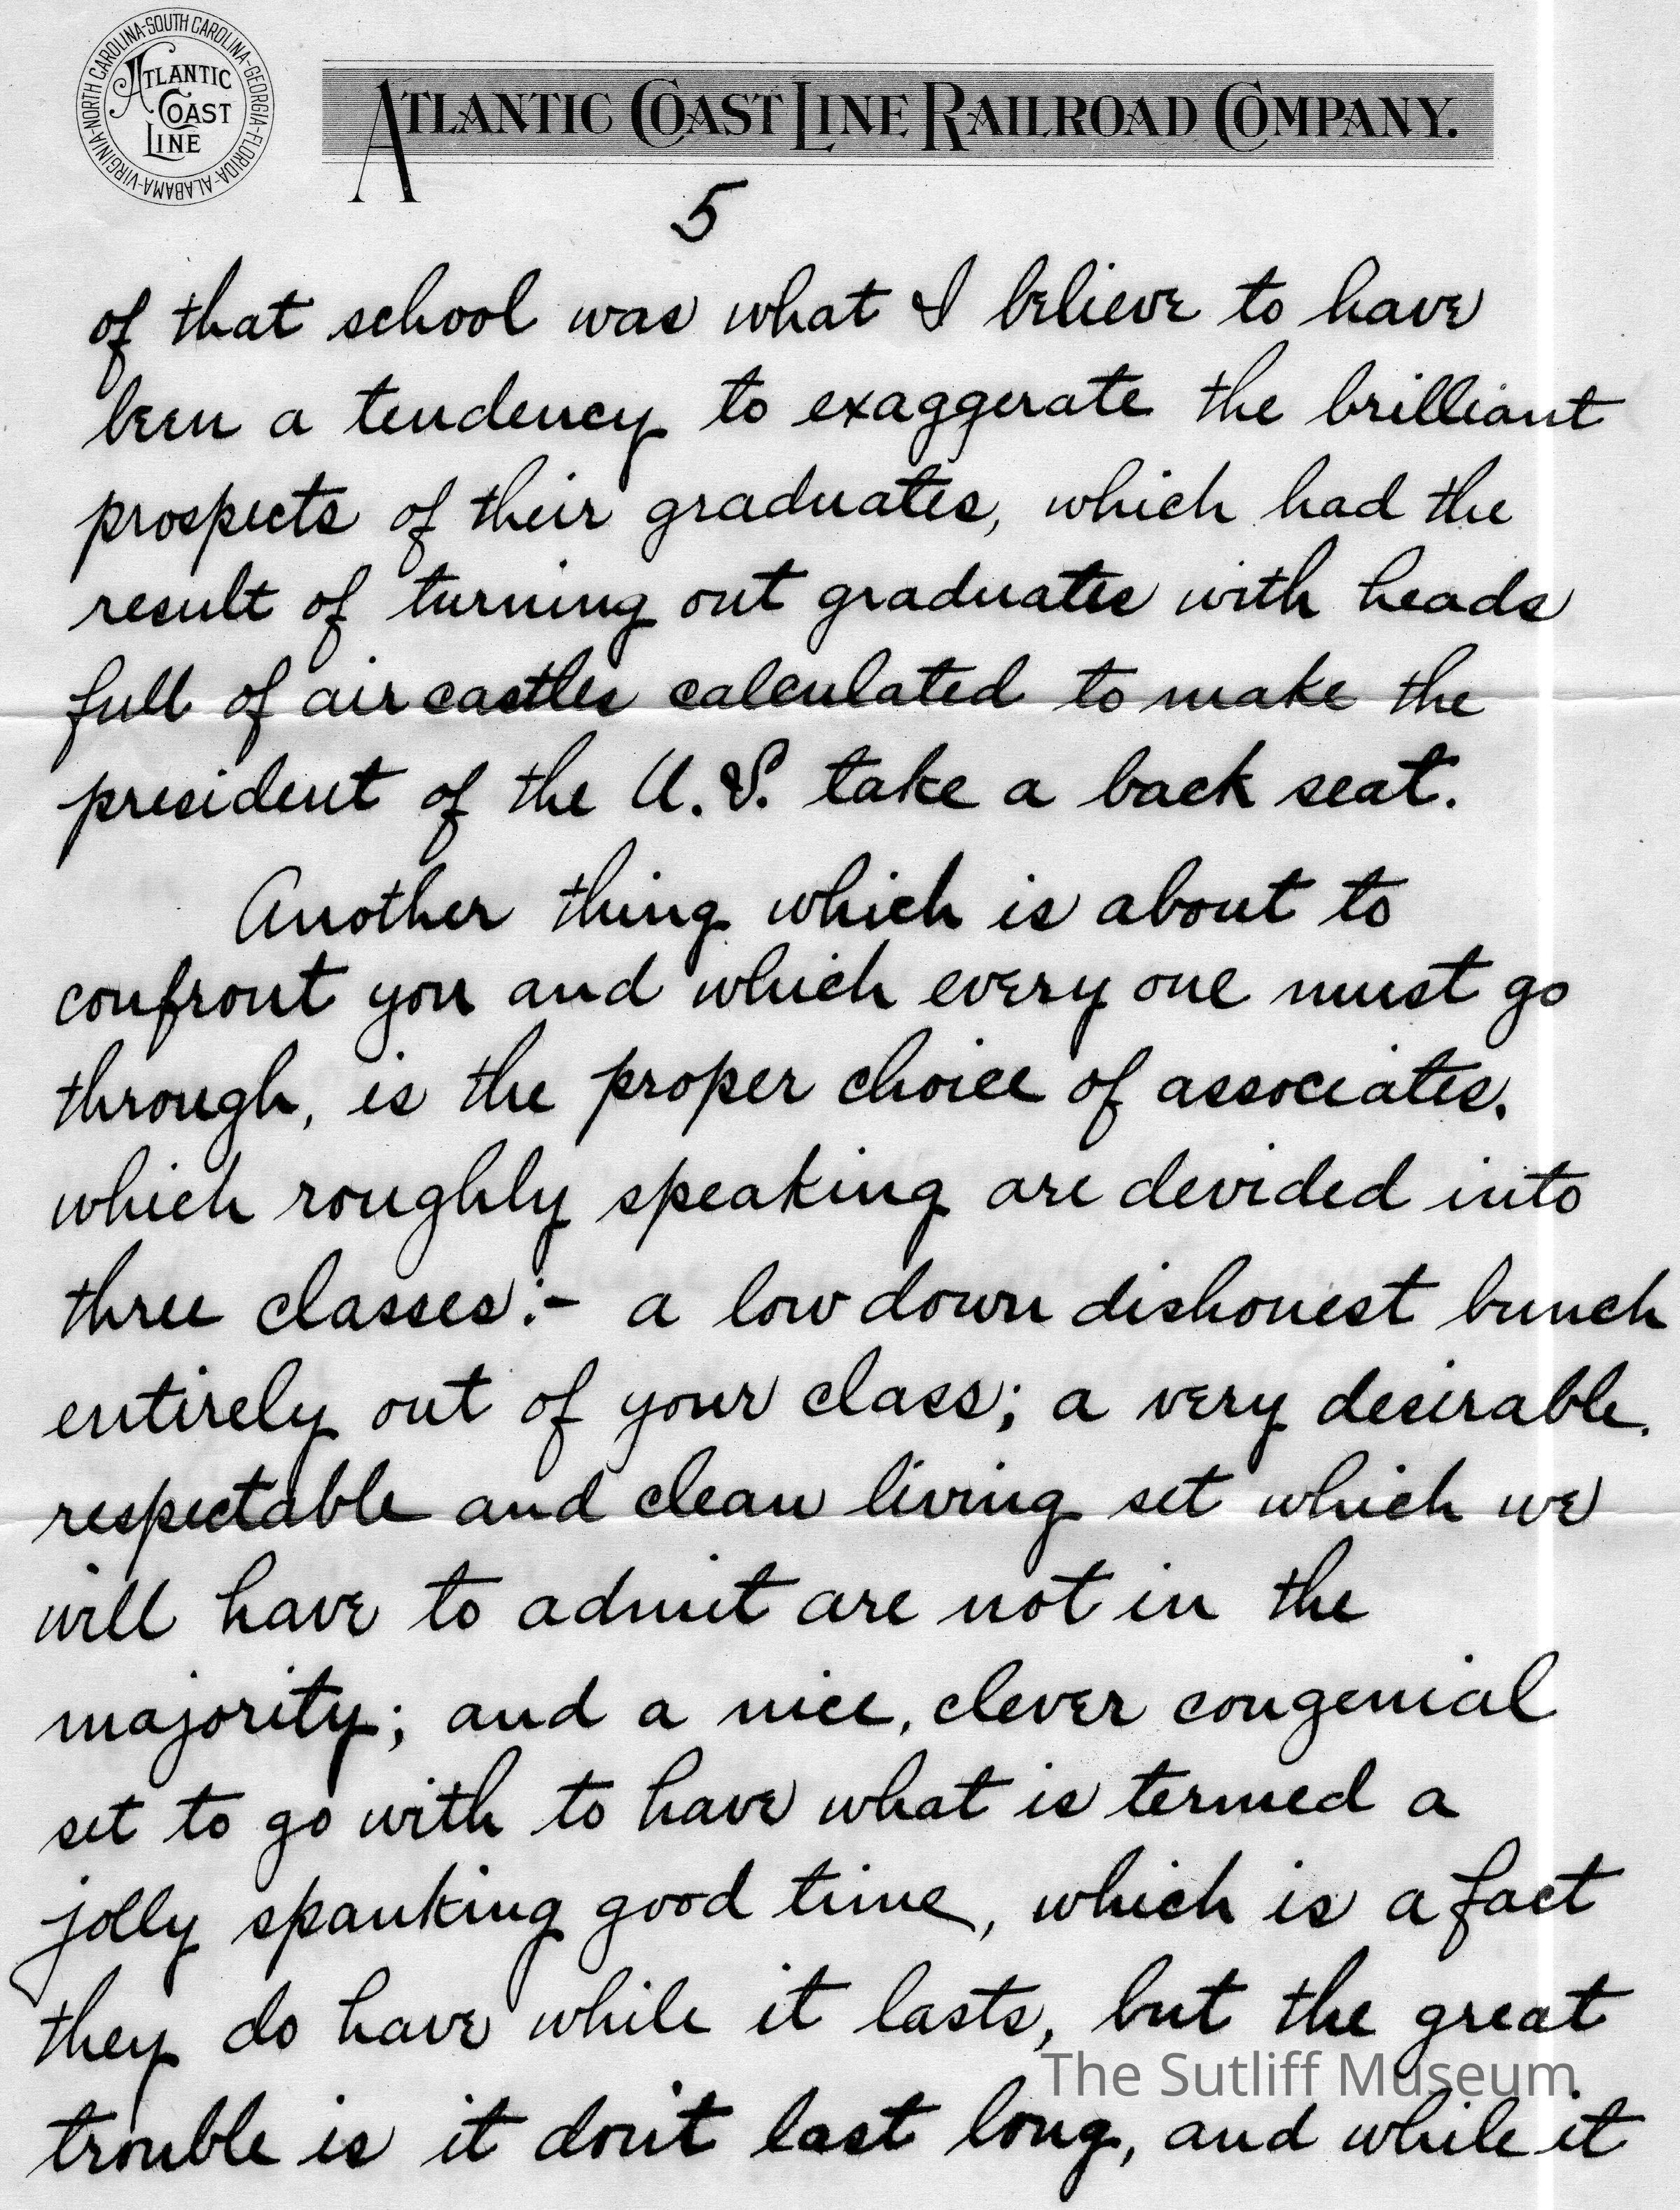 NORTH CAROLINA-SOUTH CAROLINA-GEORGIA-FLORIDA-ALABAMA-VIRGINIA-
ATLANTIC
COAST
LINE
ATLANTIC COAST LINE RAILROAD COMPANY.
5
of that school was what I believe to have
been a tendency to exaggerate the brilliant
prospects of their graduates, which had the
result of turning out graduates with heads
full of air castles calculated to make the
president of the U.S. take a back seat.
Another thing which is about to
confront you and which every one must go
through, is the proper choice of associates.
which roughly speaking are devided into
three classes:- a low down dishonest bunch
entirely out of your class; a very desirable.
respectable and clean living set which we
will have to admit are not in the
majority; and a nice, clever congenial
set to go with to have what is termed a
jolly spanking good time, which is a fact
they do have while it lasts, but the great
The Sutliff Museum
trouble is it don't last long, and while it